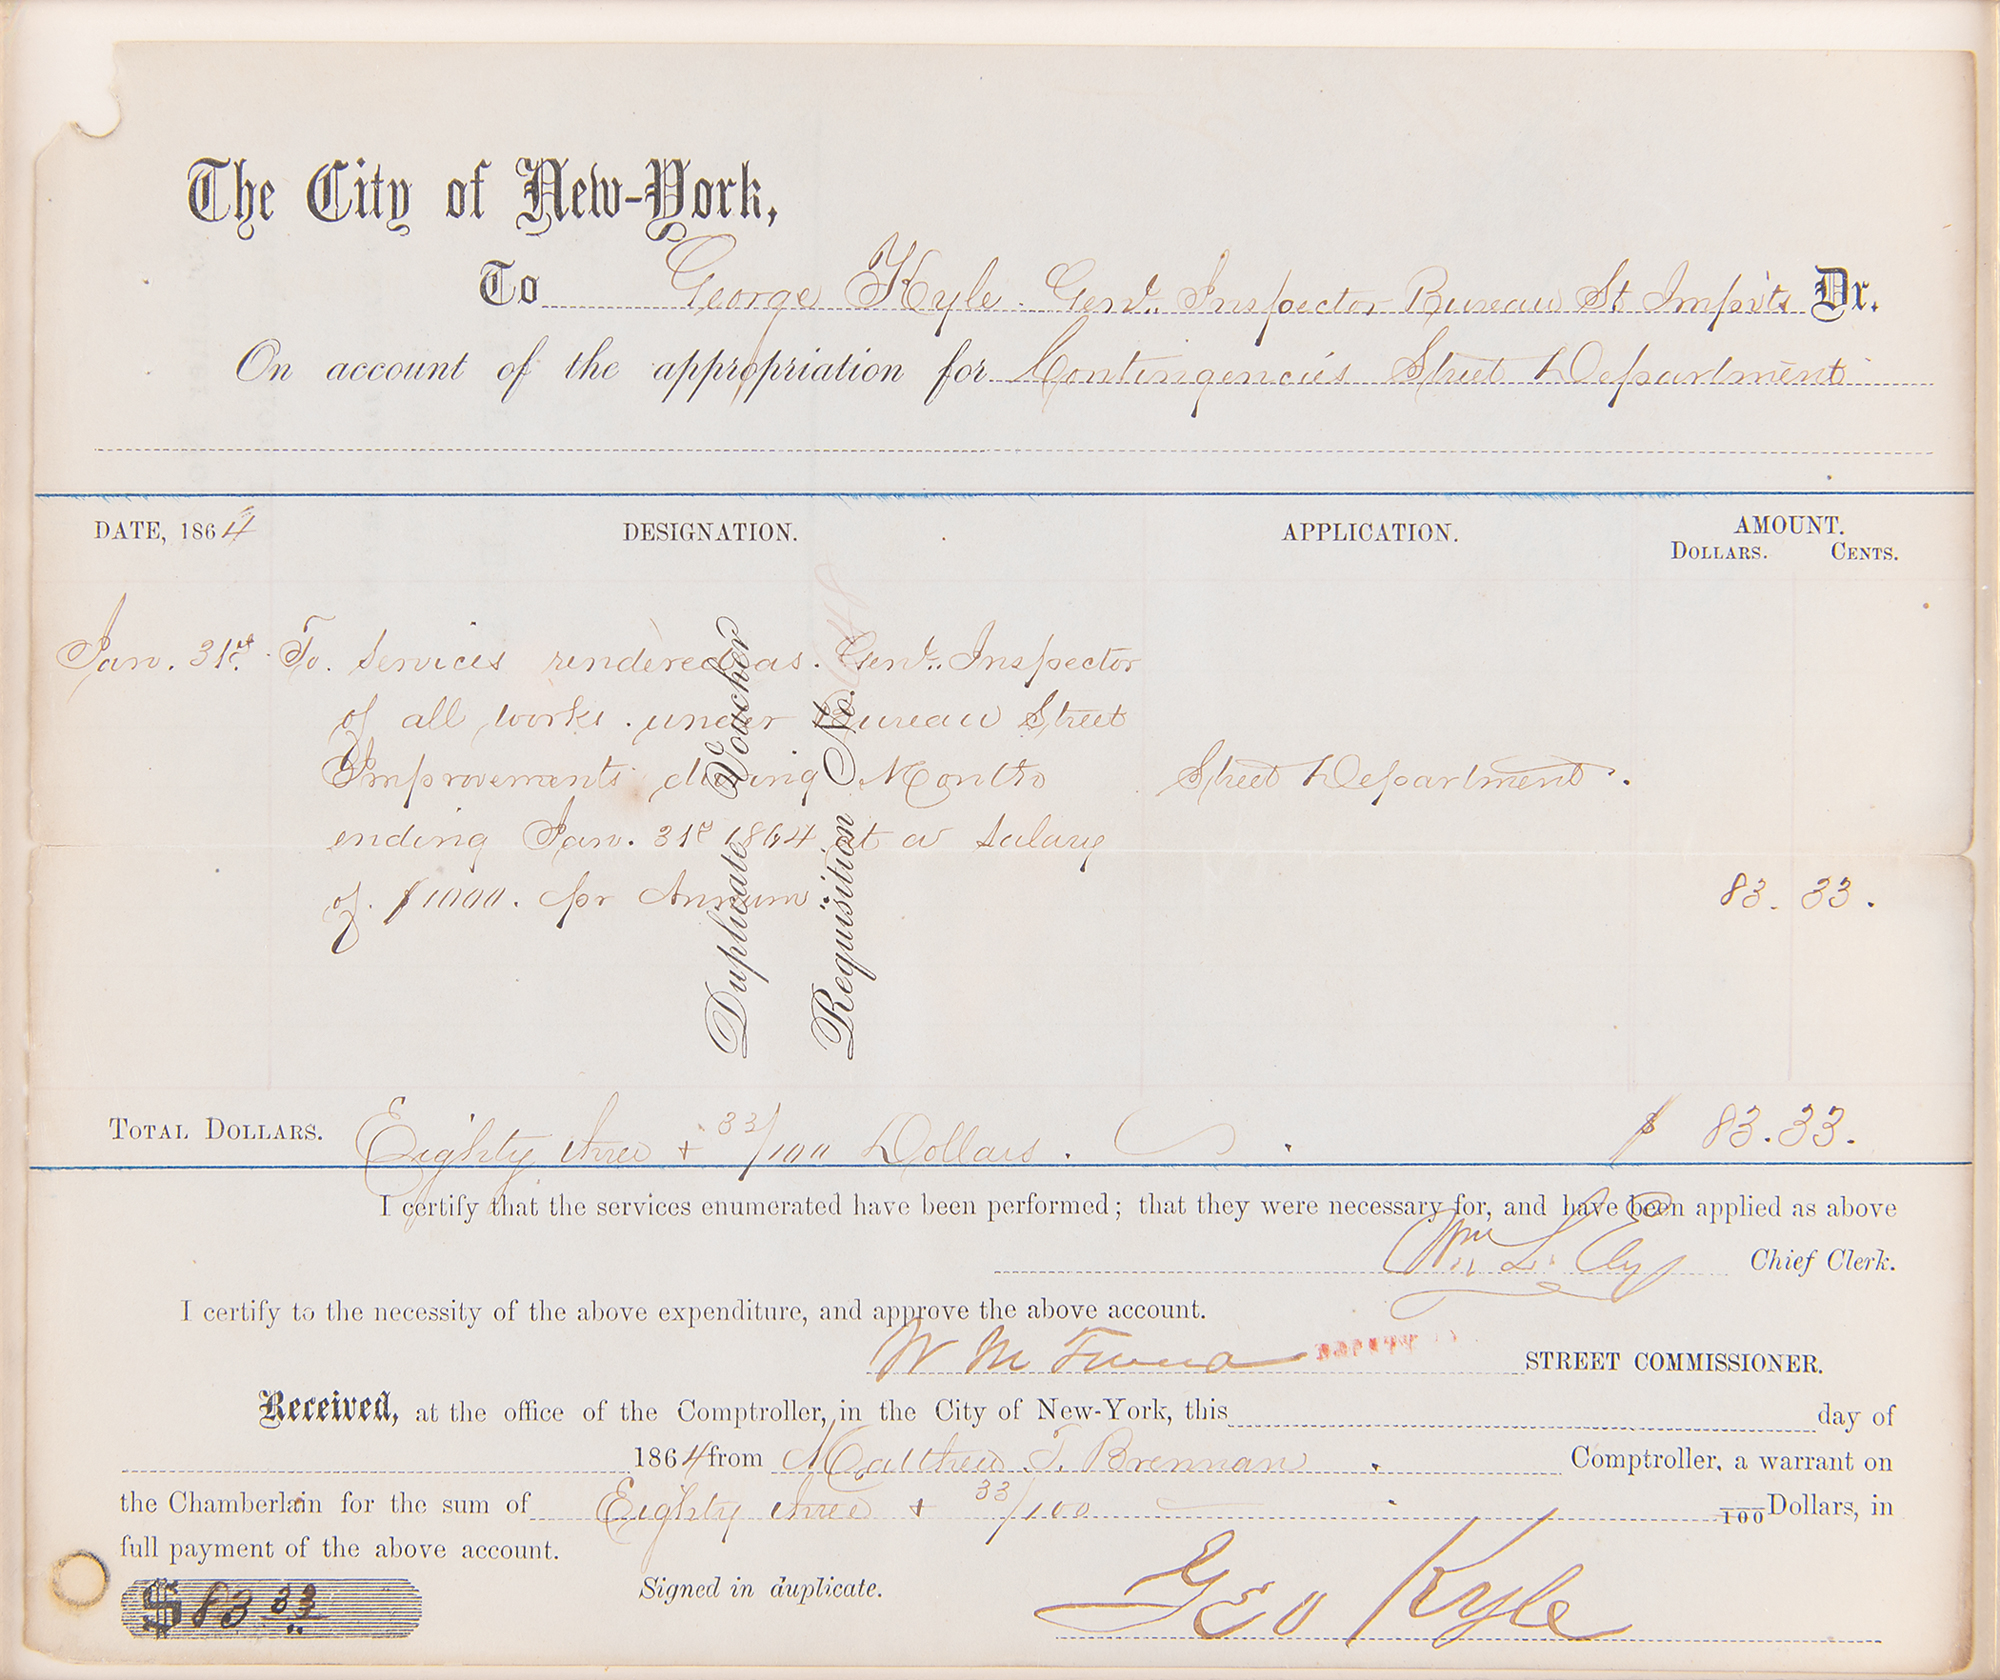 The City of New-York,
To George Kyle Genl. Inspector Bureau St Impvts Dr.
On account of the appropriation for Contingencies Street Department
DATE, 1864 DESIGNATION. APPLICATION. AMOUNT.
DOLLARS. CENTS.
Jan. 31st To Services rendered as Genl. Inspector
of all works under Bureau Street
Improvements during Month Street Department.
ending Jan. 31st 1864 at a Salary
of $1000. pr Annum 83. 33.
Duplicate Voucher
Requisition No.
TOTAL DOLLARS. Eighty three + 33/100 Dollars. $ 83.33.
I certify that the services enumerated have been performed; that they were necessary for, and have been applied as above
Wm L. Chief Clerk.
I certify to the necessity of the above expenditure, and approve the above account.
W M STREET COMMISSIONER.
Received, at the office of the Comptroller, in the City of New-York, this day of
1864 from Matthew T. Brennan Comptroller, a warrant on
the Chamberlain for the sum of Eighty three + 33/100 100 Dollars, in
full payment of the above account.
$ 83 33 Signed in duplicate. Geo Kyle